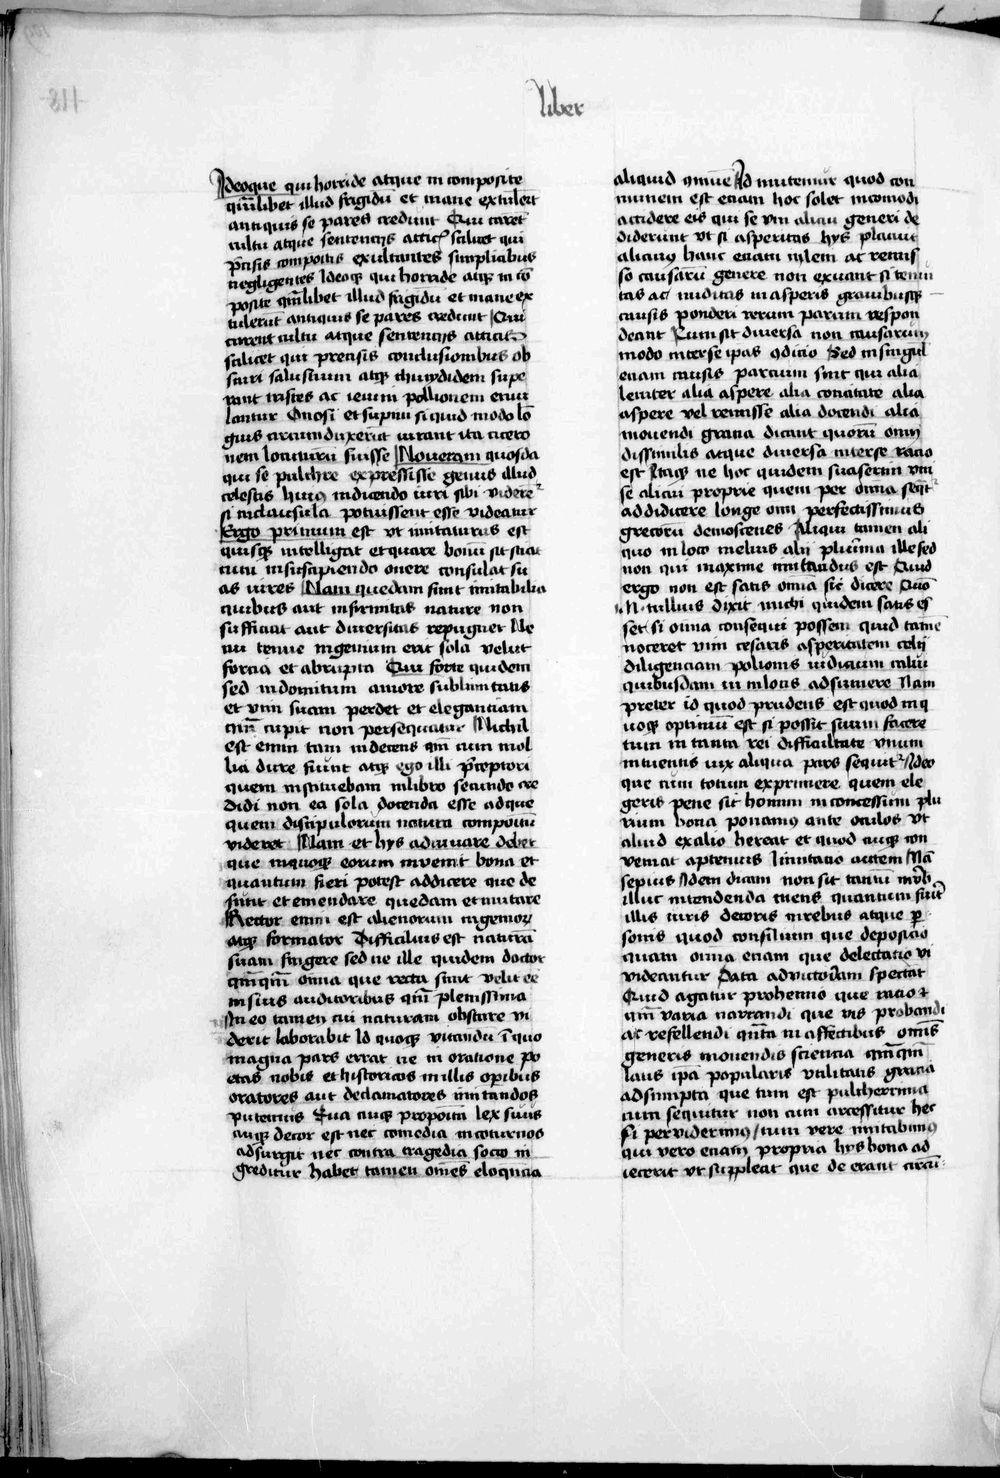 liber
Ideoque qui horride atque incomposite
qm̄libet illud frigidū et inane extulerūt
antiquis se pares credunt Qui carēt
cultu atque sentencijs attici scilicet qui
p̄cisis compositis exultantes simplicibus
negligentes Ideoq; qui horride atq; in cō
posite qm̄libet illud frigidū et inane ex
tulerūt antiquis se pares credunt Qui
carent cultu atque sentencijs atticis
scilicet qui precisis conclusionibus ob
scuri salustium atq; thuydidem supe
rant tristes ac ieiuni pollionem emu
lantur Ociosi et supini si quid modo lō
gius circumduxerūt iurant ita cicero
nem locuturū fuisse Noueram quosdā
qui se pulchre expressisse genus illud
celestis huiꝰ indicendo uiri sibi viderēt᷑
si inclausula potuissent esse videatur
Ergo primum est vt imitaturus est
quisq; intelligat et quare bonū sit sciat
tum insuscipiendo onere consulat su
as uires Nam quedam sunt imitabilia
quibus aut infirmitas nature non
sufficiat aut diuersitas repugnet Ne
cui tenue ingenium erit sola velut
fortia et abrupta Cui forte quidem
sed indomitum amore subtilitatis
et vim suam perdet et eleganciam
qm̄ cupit non persequatur Nichil
est enim tam indecens qm̄ cum mol
lia dure fiunt atq; ego illi p̄ceptori
quem instituebam inlibro secundo cre
didi non ea sola docenda esse adque
quem discipulorum natura compositū
videret Nam et hys adiuuare debet
que inquoq; eorum inuenit bona et
quantum fieri potest addicere que de
sunt et emendare quedam et mutare
Rector enim est alienorum ingenioꝝ
atq; formator Difficilius est naturā
suam fingere sed ne ille quidem doctor
qm̄qm̄ omnia que recta sunt velit eē
insuis auditoribus qm̄ plenissima
In eo tamen cui naturam obstare vi
derit laborabit Id quoq; vitandū ī quo
magna pars errat ne in oratione po
etas nobis et historicos inillis operibus
oratores aut declamatores imitandos
putemus Sua cuiq; proposita lex suus
cuiq; decor est nec comedia incoturnos
adsurgit nec contra tragedia socco in
greditur habet tamen omēs eloqncia
aliquid cōmūe Id mutemur quod con
munem est etiam hoc solet incomodi
accidere eis qui se vni alicui generi de
diderunt vt si asperitas hys placuit
alicuiꝰ hanc etiam inlem ac remis
so causarū genere non exuant si tenui
tas ac nuditas inasperis grauibusq;
causis ponderi rerum parum respon
deant Cum sit diuersa non causarum
modo interse ipas ɔdicio Sed insingul
etiam causis partium sint qui alia
leniter alia aspere alia concitate alia
aspere vel remisse alia docendi alia
mouendi gratia dicant quorū omīū
dissimilis atque diuersa interse racio
est Itaq; ne hoc quidem suaserim vni
se alicui proprie quem per omīa seqt᷑
addidicere longe omī perfectissimus
grecorū demostenes Aliqui tamen ali
quo inloco melius alij plurima ille sed
non qui maxime imitandus est Quid
ergo non est satis omīa sic dicere Quō
M tullius dixit michi quidem satis eē
set si oīna consequi possem quid tamē
noceret vim cesaris asperitatem celij
diligenciam polionis iudicium calui
quibusdam in inlocis adsumere Nam
preter id quod prudens est quod inq
uoq; optimū est si possit suum facere
tum in tanta rei difficultate vnum
intuentis vix aliqua pars sequit᷑ Ideo
que cum totum exprimere quem ele
geris pene sit homini inconcessum plu
rium bona ponamꝰ ante oculos vt
aliud exalio hereat et quod cuiq; con
veniat aptemus Imitatio autem Nā
sepius Idem dicam non sit tantū inv̄b
illuc intendenda mens quantum fuīt
illis iuris decoris inrebus atque p̲
sonis quod consilium que deposicio
quam oīna etiam que delectatio vi
videantur Data advictoriam spectāt
Quid agatur prohemio que racio ⁊
qm̄ varia narrandi que vis probandi
ac refellendi qnta in affectibus omīs
generis mouendis sciencia qm̄qm̄
laus ip̄a popularis vtilitatis gracia
adsumpta que tum est pulcherrima
cum sequitur non cum arcessitur hec
si perviderimꝰ / tum vere imitabimꝰ
qui vero etiam propria hys bona ad
iecerit vt suppleat que de erant circū